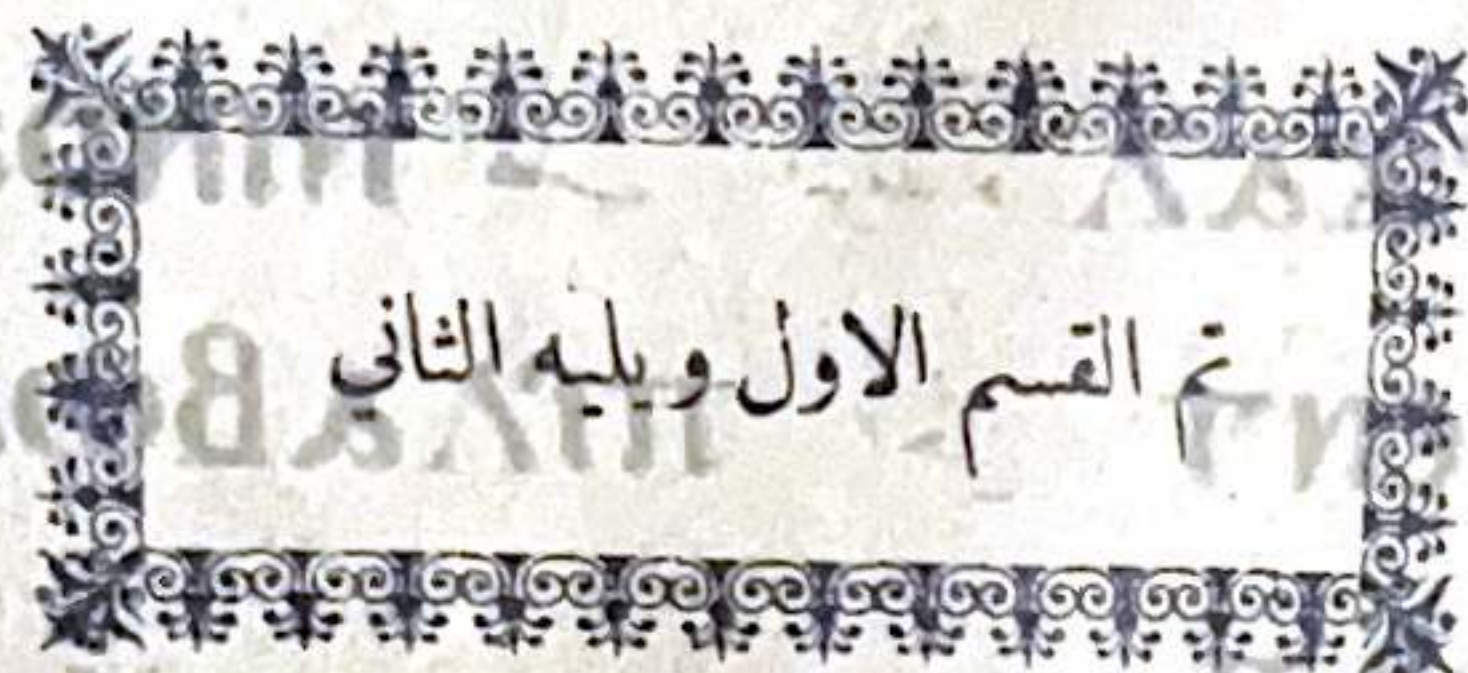 تم القسم الاول ويليه الثاني